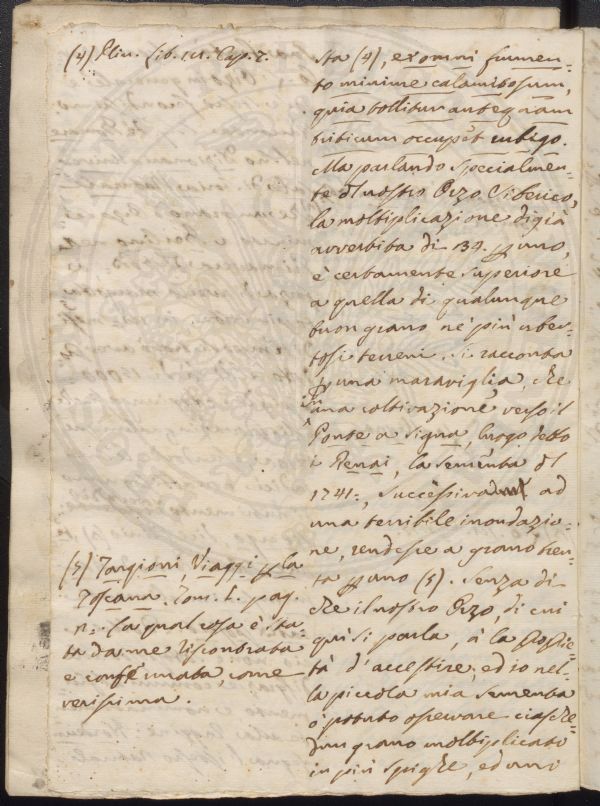 (4) Plin. Lib. 18. Cap. 7.
sta (4), ex omni frumen-
to minime calamitosum,
quia tollitur antequam
triticum occupet rubigo.
Ma parlando specialmen-
te dl nostro Orzo Siberico,
la moltiplicazione di già
avvertita di 139. p uno,
è certamente superiore
a quella di qualunque
buon grano ne' più uber-
tosi terreni. Si racconta
p una maraviglia, che
in una coltivazione verso il
Ponte a Signa, luogo detto
i Renai, la sementa dl
1741:, successiva ad
una terribile inondazio-
ne, rendesse a grano tren-
ta p uno (5). Senza di
che il nostro Orzo, di cui
qui si parla, à la proprie-
tà d'accestire; ed io nel-
la piccola mia sementa
ò potuto osservare ciasche-
dun grano moltiplicato
in più spighe, ed anni
(5) Targioni, Viaggi p la
Toscana. Tom. I. pag.
n:. La qual cosa è sta-
ta da me riscontrata
e confermata, come
verissima.